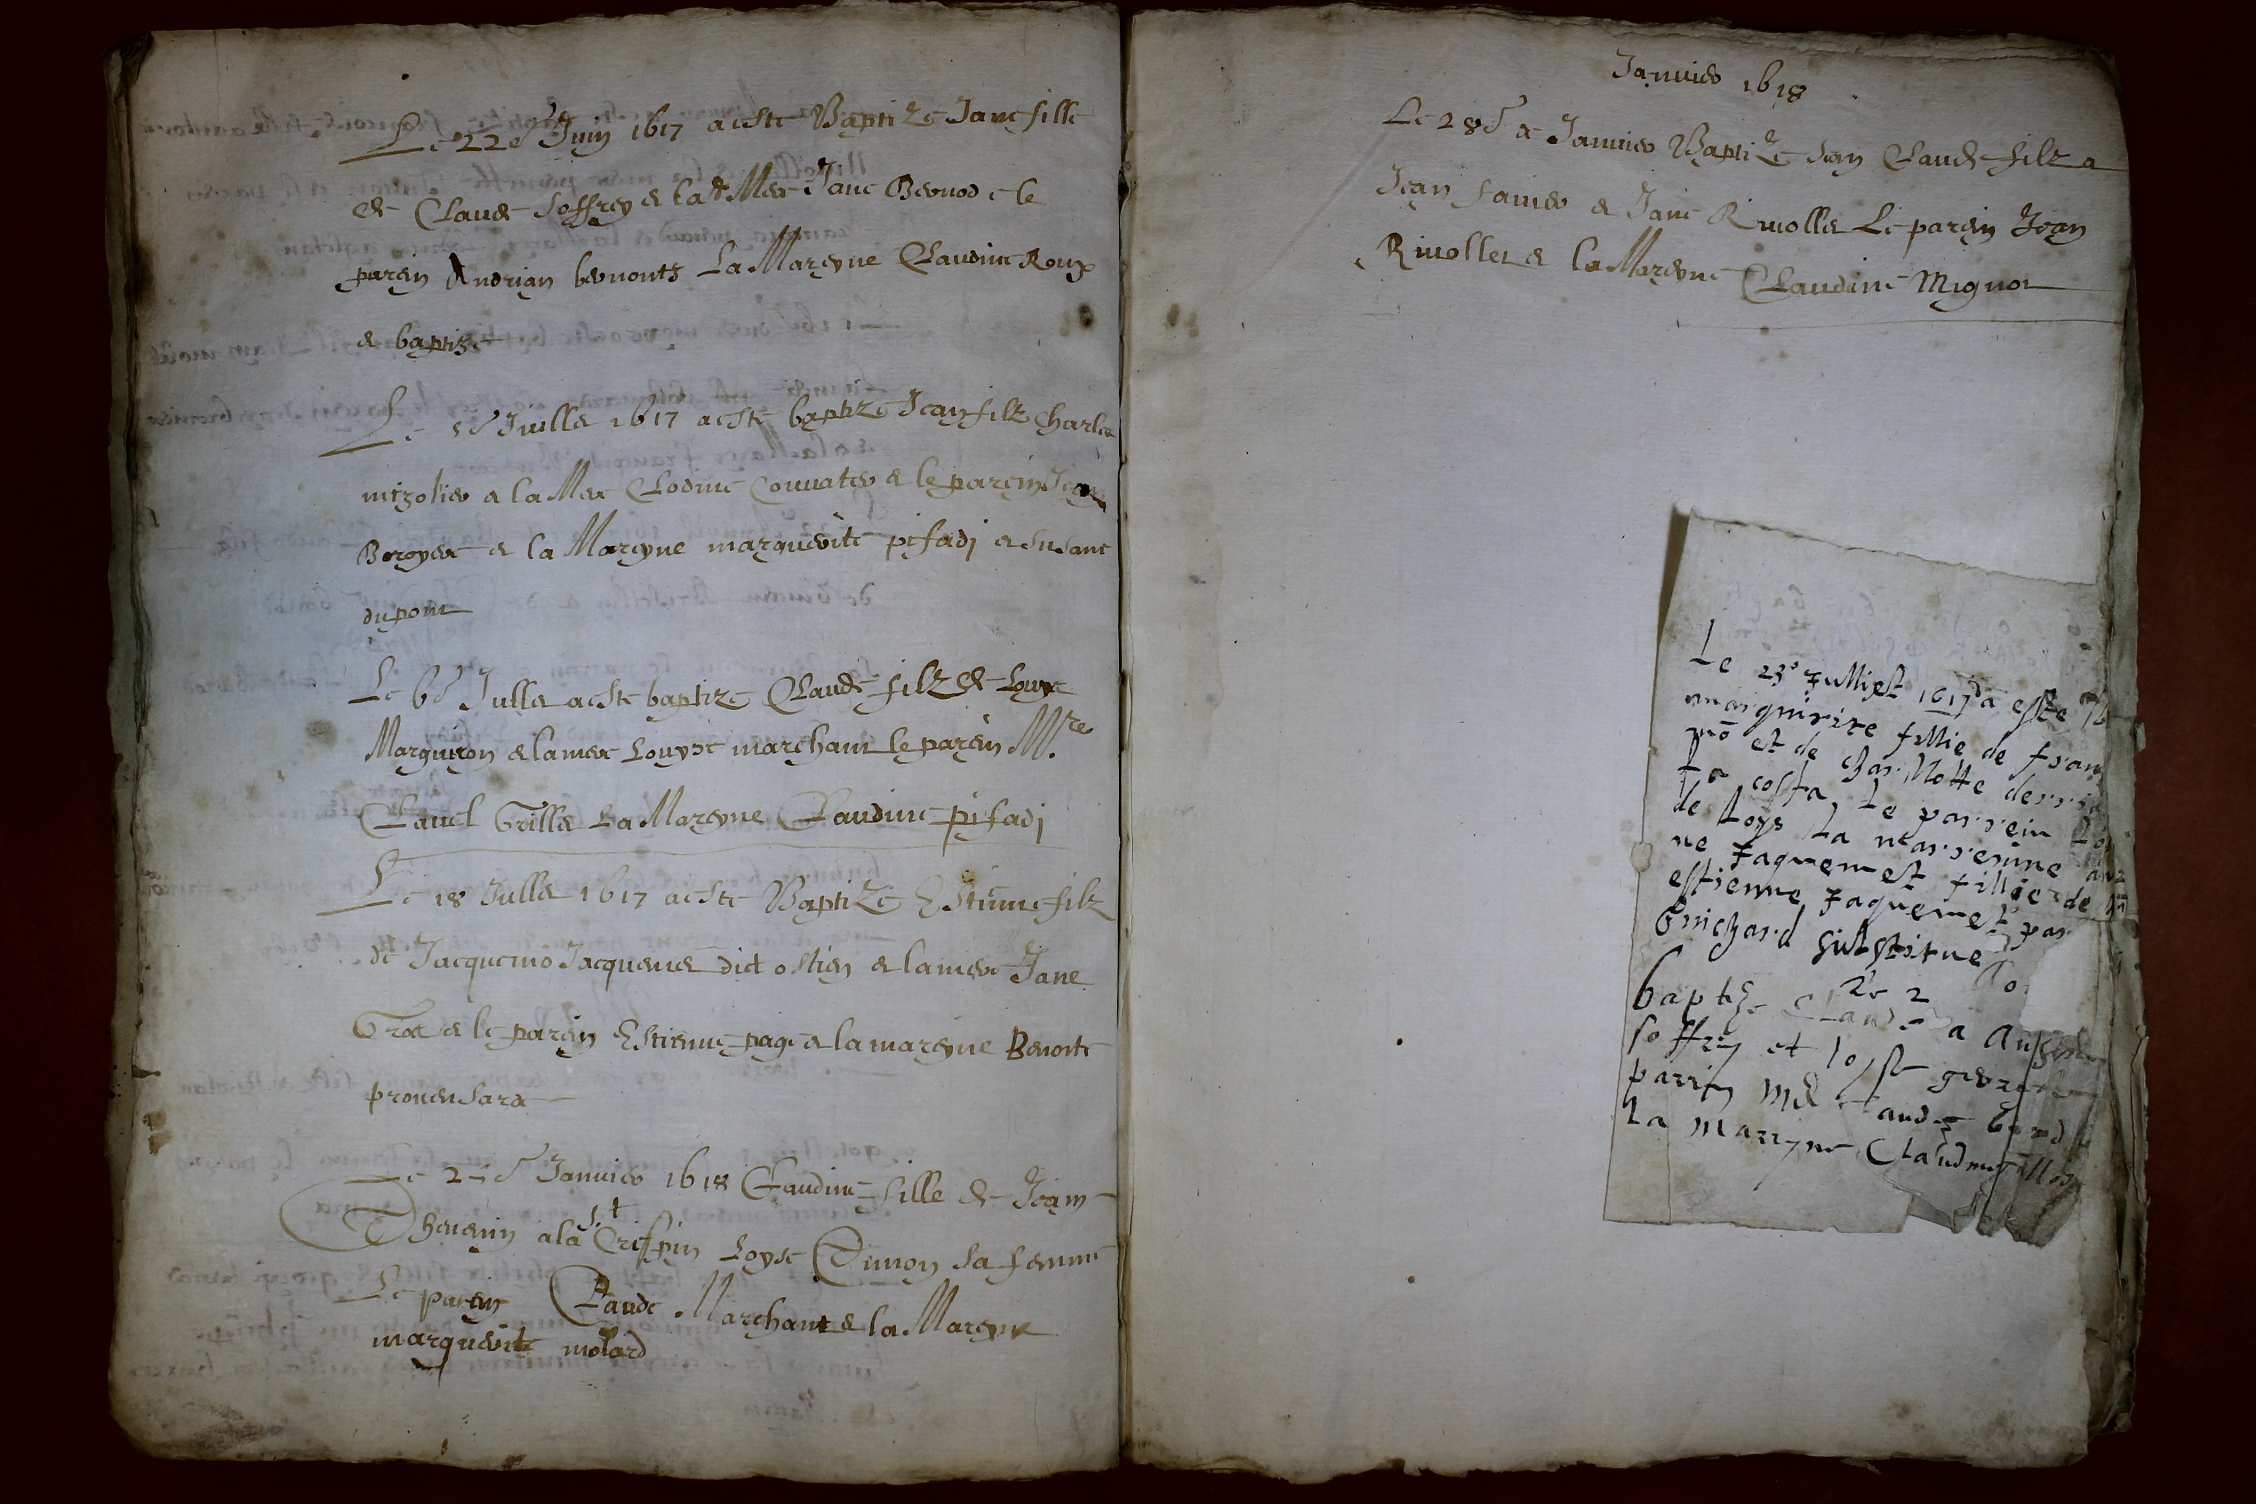 Le 22e Juin 1617 a este Baptize Jane fille
de Claude soffrey & la Mere Jane Bernod & le
parein Andrian bernonts La Mareyne Claudine Roux
& baptize
Le 5e Juillet 1617 a este baptize Jean filz Charles
& la Mere Clodine & le parein Jean
Broyere & la Mareyne marguerite pifadj & susane
dupont
Le 6e Jullet a este baptize Claude filz de Louys
Marguiron & la mere Louyse marchant le parein Mre
Claude Grillet La Mareyne Claudine pifadj
Le 18 Jullet 1617 a este Baptize Estienne filz
de Jacquemo Jacquemet dict ostien & la mere Jane
& le parein Estienne page & la mareyne Benoite
prouensara
Le Januier 1618 Claudine fille de Jean
Theuenin a la st Crispin Loyse Dimon sa femme
Le parein Claude Marchant & la Mareyne
marguerite molard
Januier 1618
Le 28e de Januier Baptize Jean Claude filz a
Jean & Jane Riuollet Le parein Jean
Riuollet & la Mareyne Claudine Mignot
Le 23e Julliest 1617 a este
marguirite fillie de fran
et de Char.llotte
la costa Le par.rein
de Loys La mar.reinne
ne Jaquemest fillie de
estienne Jaquemest par
Guichard substitue
baptize Claude a
soffrey et loyse
parrin Claude
La marryne Claudine